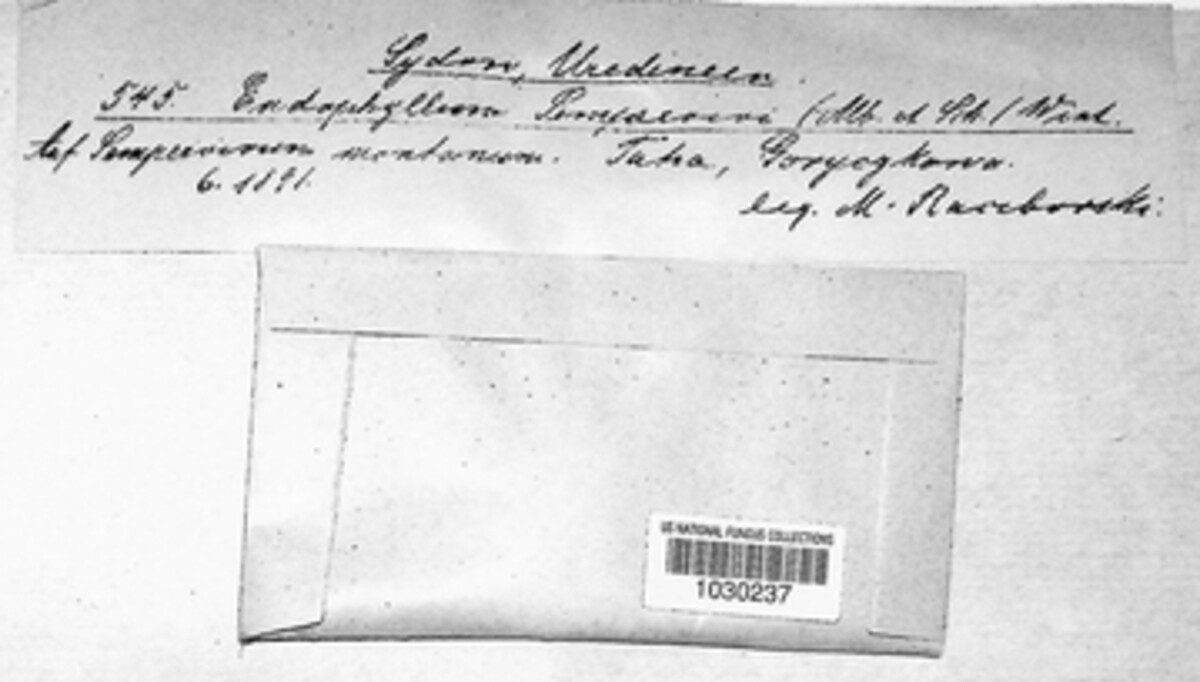 Sydow, Uredineen.
545. Endophyllum Sempervivi (Alb. et Sch.) Wint.
Auf Sempervivum montanum. Tatra,
6. 1891.
leg. M. Raciborski.
US NATIONAL FUNGUS COLLECTIONS
1030237